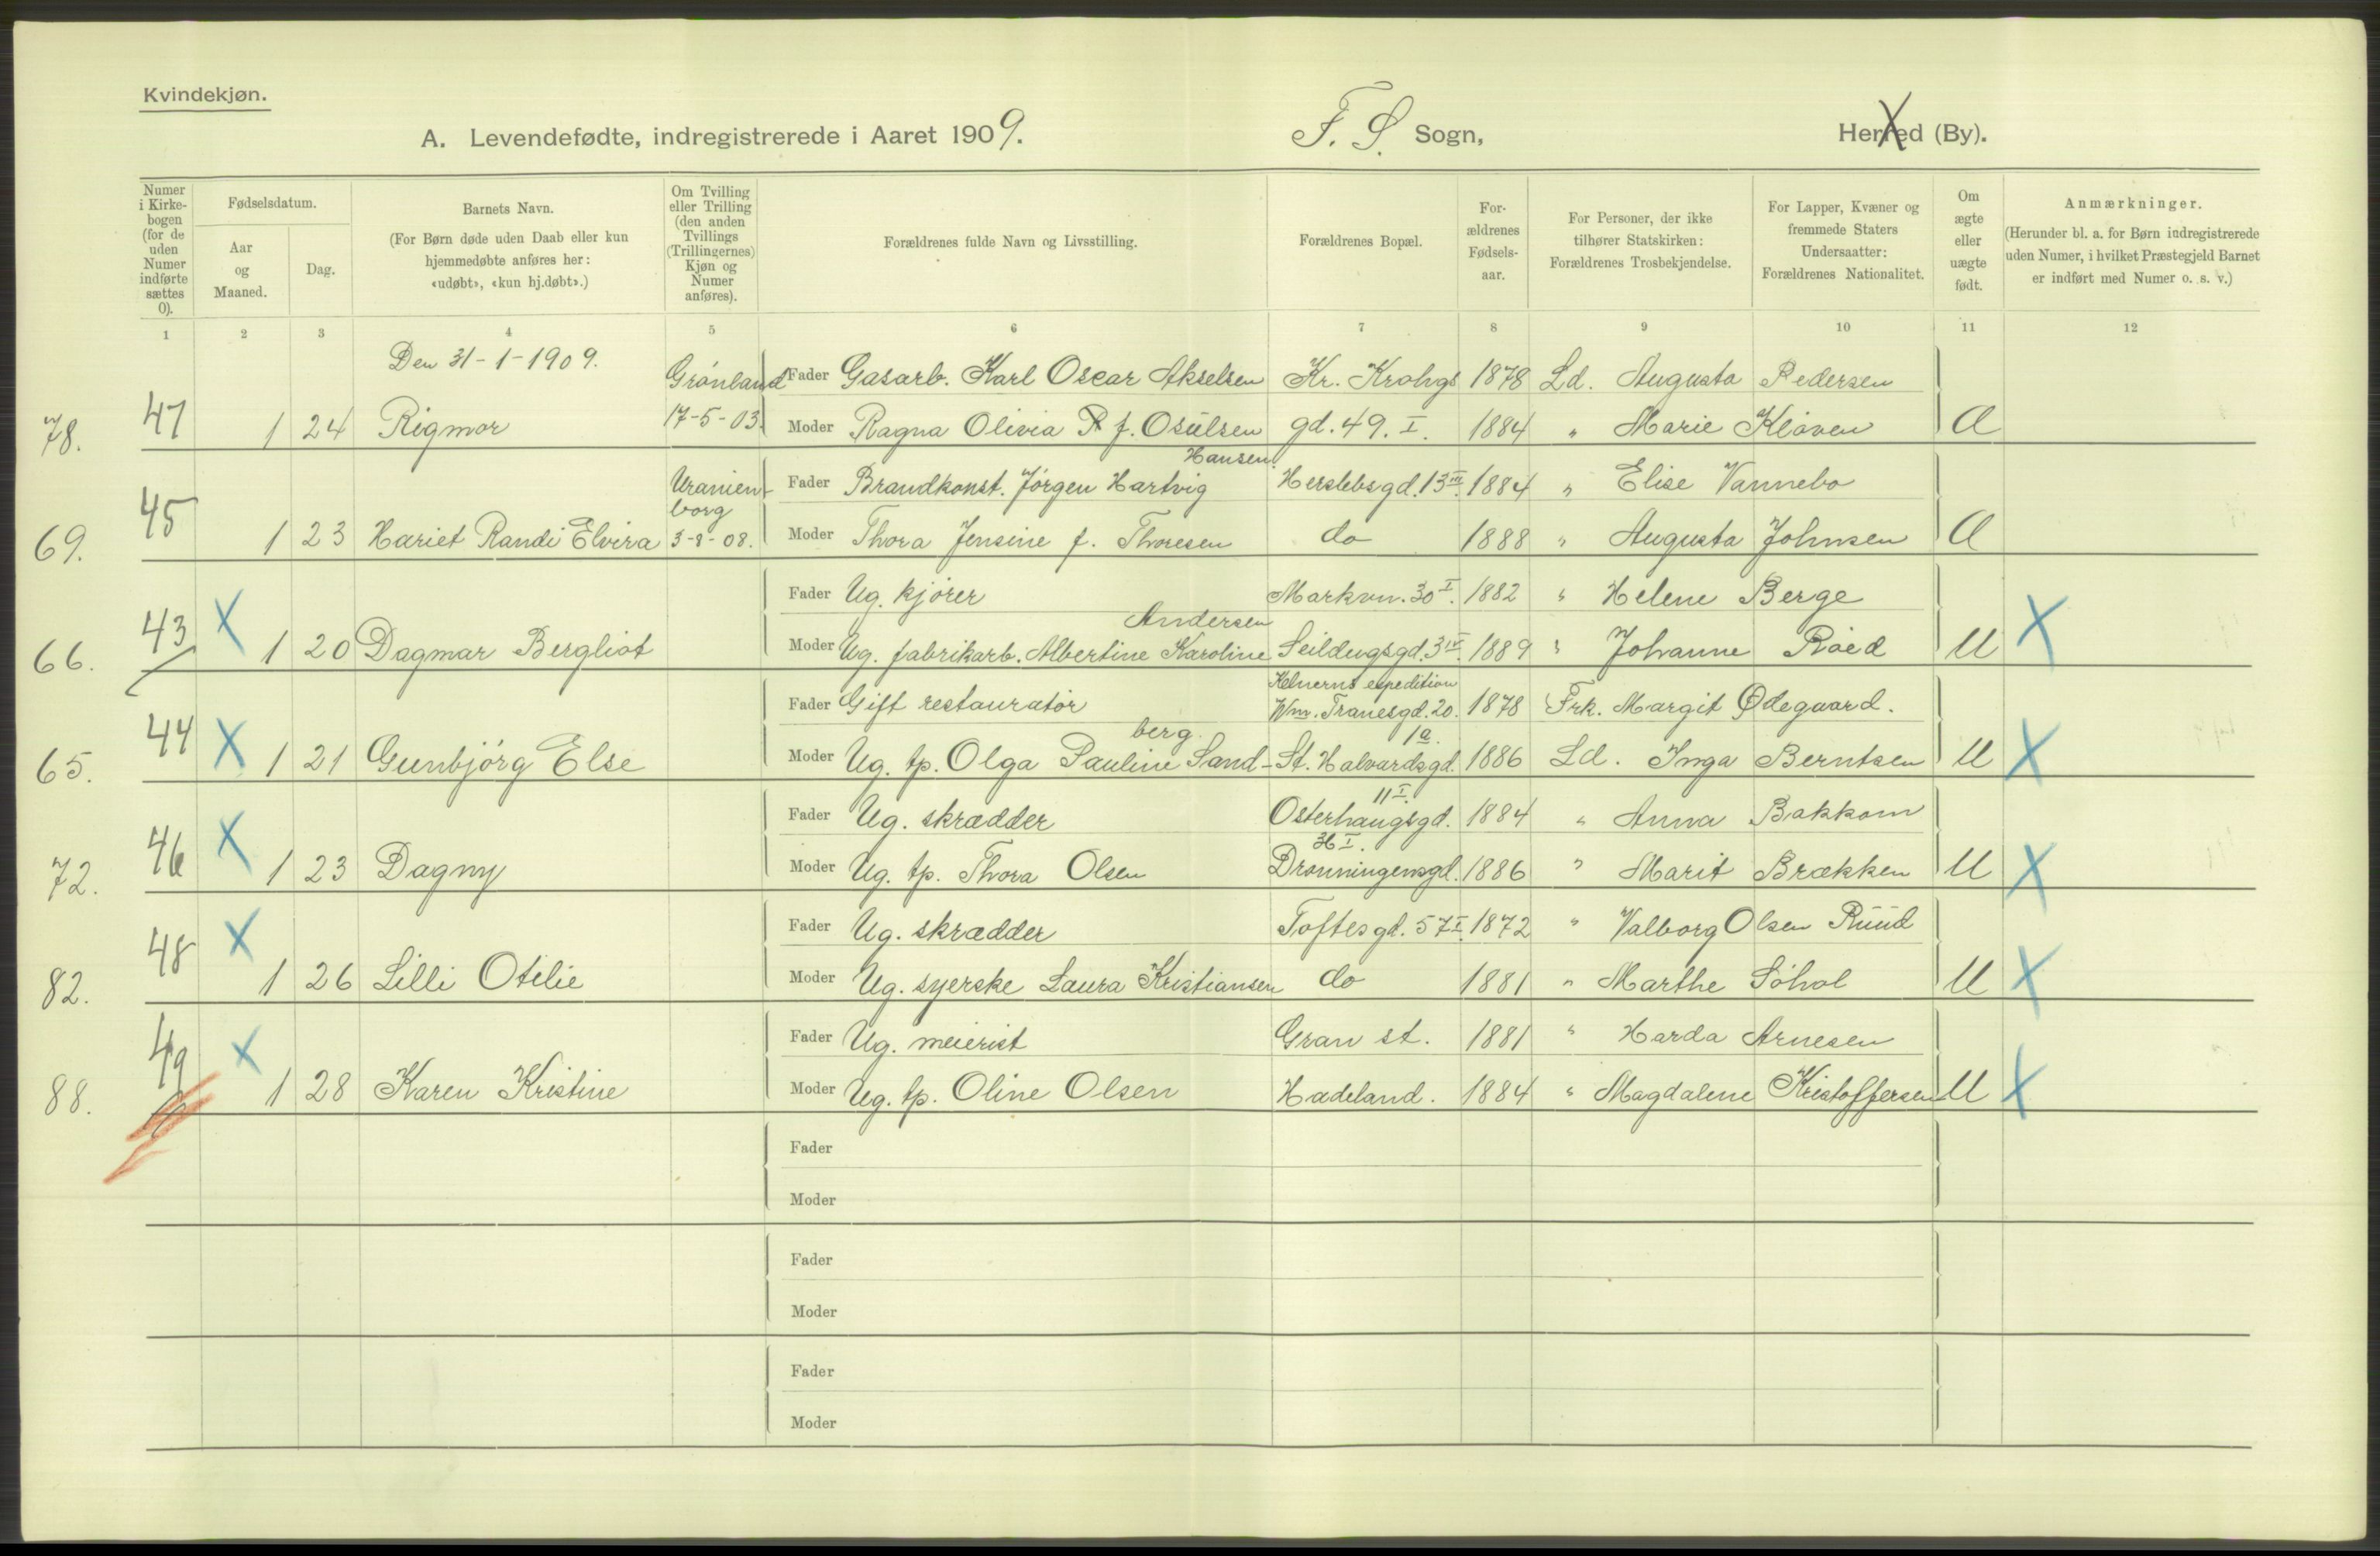 Kvindekjøn.
A. Levendefødte, indregistrerede i Aaret 1909.
F. S. Sogn,
Herred (By).
Numer i Kirke-bogen (for de uden Numer indførte sættes 0).
Fødselsdatum.
Aar og Maaned.
Dag.
Barnets Navn.
(For Børn døde uden Daab eller kun hjemmedøbte anføres her: «udøbt», «kun hj.døbt».)
Om Tvilling eller Trilling (den anden Tvillings (Trillingernes) Kjøn og Numer anføres).
Forældrenes fulde Navn og Livsstilling.
Forældrenes Bopæl.
For-ældrenes Fødsels-aar.
For Personer, der ikke tilhører Statskirken: Forældrenes Trosbekjendelse.
For Lapper, Kvæner og fremmede Staters Undersaatter: Forældrenes Nationalitet.
Om ægte eller uægte født.
Anmærkninger.
(Herunder bl. a. for Børn indregistrerede uden Numer, i hvilket Præstegjeld Barnet er indført med Numer o. s. v.)
1 2 3 4 5 6 7 8 9 10 11 12
Den 31-1-1909.
Grønland Fader Gasarb. Karl Oscar Akselsen Kr. Krohgs 1878 Ld. Augusta Pedersen
78. 47 1 24 Rigmor 17-5-03. Moder Ragna Olivia f. Osulsen gd. 49. I. 1884 " Marie Kløven Æ
Hansen.
Uranien- Fader Brandkonst. Jørgen Hartvig Herslebsgd. 13 III. 1884 " Elise Vannebo
borg
69. 45 1 23 Hariet Randi Elvira 3-8-08. Moder Thora Jensine f. Thoresen do 1888 " Augusta Johnsen Æ
Fader Ug. kjører Markvn. 30 I. 1882 " Helene Berge
Andersen
66. 43 X 1 20 Dagmar Bergliot Moder Ug. fabrikarb. Albertine Karoline Seildugsgd. 3 IV. 1889 " Johanne Røed U X
Kelnerns expedition
Fader Gift restauratør Wm. Tranesgd. 20. 1878 Frk. Margit Ødegaard.
berg. 1a.
65. 44 X 1 21 Gunbjørg Else Moder Ug. tp. Olga Pauline Sand- St. Halvardsgd. 1886 Ld. Inga Berntsen U X
11 I.
Fader Ug. skrædder Osterhaugsgd. 1884 " Anna Bakkom
72. 46 X 1 23 Dagny Moder Ug. tp. Thora Olsen Dronningensgd. 1886 " Marit Brækken U X
Fader Ug. skrædder Toftesgd. 57 I. 1872 " Valborg Olsen Ruud
82. 48 X 1 26 Lilli Otilie Moder Ug. syerske Laura Kristiansen do 1881 " Marthe Søhol U X
Fader Ug. meierist Gran st. 1881 " Harda Arnesen
88. 49 X 1 28 Karen Kristine Moder Ug. tp. Oline Olsen Hadeland. 1884 " Magdalene Kristoffersen U X
Fader
Moder
Fader
Moder
Fader
Moder